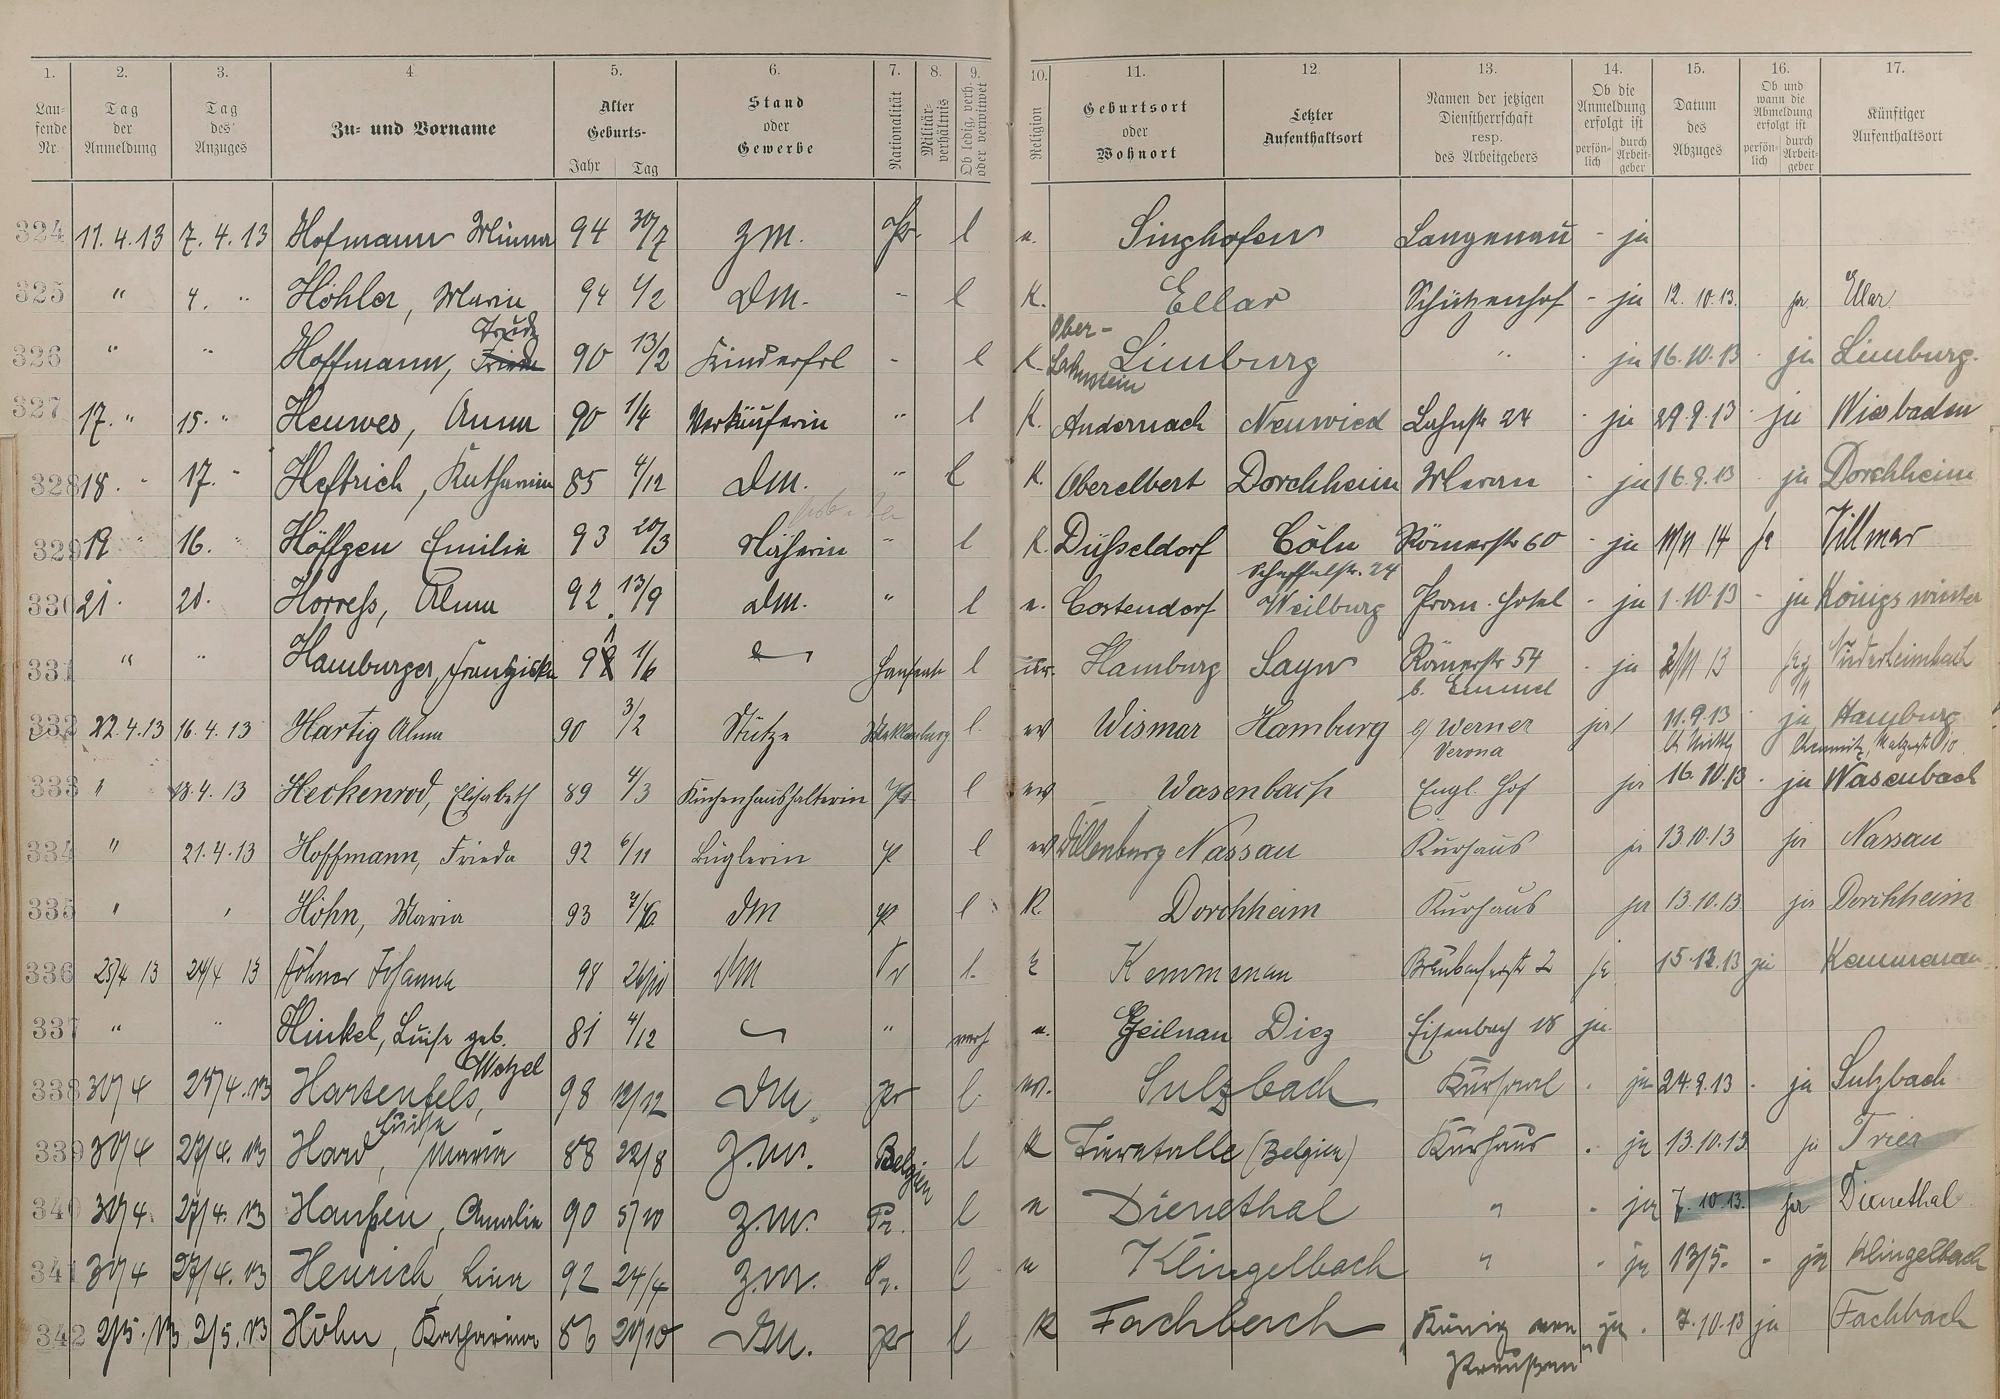 1. 2. 3. 4. 5. 6. 7. 8. 9. 10. 11. 12. 13. 14. 15. 16. 17.
Lau-
fende
Nr.
Tag
der
Anmeldung
Tag
des
Anzuges
Zu- und Vorname
Alter
Geburts-
Jahr Tag
Stand
oder
Gewerbe
Nationalität
Militär-
verhältnis
Ob ledig, verh.
oder verwitwet
Religion
Geburtsort
oder
Wohnort
Letzter
Aufenthaltsort
Namen der jetzigen
Dienstherrschaft
resp.
des Arbeitgebers
Ob die
Anmeldung
erfolgt ist
persön-
lich
durch
Arbeit-
geber
Datum
des
Abzuges
Ob und
wann die
Abmeldung
erfolgt ist
persön-
lich
durch
Arbeit-
geber
Künftiger
Aufenthaltsort
324 11.4.13 7.4.13 Hofmann Minna 94 30/7 ZM. Pr. l e. Singhofen Langenau - ja
325 " 4. " Höhler, Maria 94 4/2 DM. - l K. Ellar Schützenhof - ja 12.10.13. ja Ellar
326 " " Hoffmann, Trude 90 13/2 Kinderfrl - l K. Ober-
Lahnstein Limburg " - ja 16.10.13 - ja Limburg.
327 17. " 15. " Heuwes, Anna 90 1/4 Verkäuferin " l K. Andernach Neuwied Lahnstr 24 - ja 29.9.13 - ja Wiesbaden
328 18. " 17. " Heftrich, Katharina 85 4/12 DM. " l K. Oberelbert Dorchheim Meran - ja 16.9.13 - ja Dorchheim
329 19 " 16. " Höffgen Emilie 93 20/3 Näherin " l K. Düsseldorf Cöln Römerstr 60 - ja 11/11 14 ja Villmar
Scheffelstr. 24
330 21. 20. Horreß, Alma 92 13/9 DM. " l e. Costendorf Weilburg Prom. Hotel - ja 1.10.13 - ja Königswinter
331 " " Hamburger, Franziska 1/6 l isr. Hamburg Sayn Römerstr 54
b. Emmel - ja Niederheimbach
332 22.4.13 16.4.13 Hartig Alma 90 3/2 Stütze Mecklenburg l. ev Wismar Hamburg Werner
Verona ja 11.9.13 ja Hamburg
333 " 18.4.13 Heckenrod, Elisabeth 89 4/3 Küchenhaushälterin Pr l ev Wasenbach Engl. Hof ja 16.10.13 - ja Wasenbach
334 " 21.4.13 Hoffmann, Frieda 92 6/11 Büglerin P l ev Dillenburg Nassau Kurhaus ja 13.10.13 ja Nassau
335 " " Höhn, Maria 93 DM P l K. Dorchheim Kurhaus ja 13.10.13 ja Dorchheim
336 25/4 13 24/4 13 Höhner Johanna 98 26/10 DM Pr l. Kemmenau 2 ja 15.12.13 ja Kemmenau
337 " " Hinkel, Luise geb.
Wetzel 81 4/12 " verh e. Geilnau Diez Eisenbach 18 ja
338 30/4 29/4.13 Hartenfels,
Luise 98 12/12 DM pr l. ev. Sulzbach Kursaal - ja 24.9.13 - ja Sulzbach
339 30/4 27/4.13 Hard, Maria 88 22/8 Z.M. Belgien l K (Belgien) Kurhaus - ja 13.10.13 ja Trier
340 30/4 27/4.13 Haußen, Amalie 90 5/10 Z.M. Pr. l e Dienethal " - ja 7.10.13. ja Dienethal
341 30/4 27/4.13 Henrich, Lina 92 24/4 Z.M. Pr. l e Klingelbach " - ja 13/5 - ja Klingelbach
342 2/5.13 2/5.13 Höhn, Katharina 86 20/10 DM. pr l K Fachbach "König von
Preußen" ja. 7.10.13 ja Fachbach